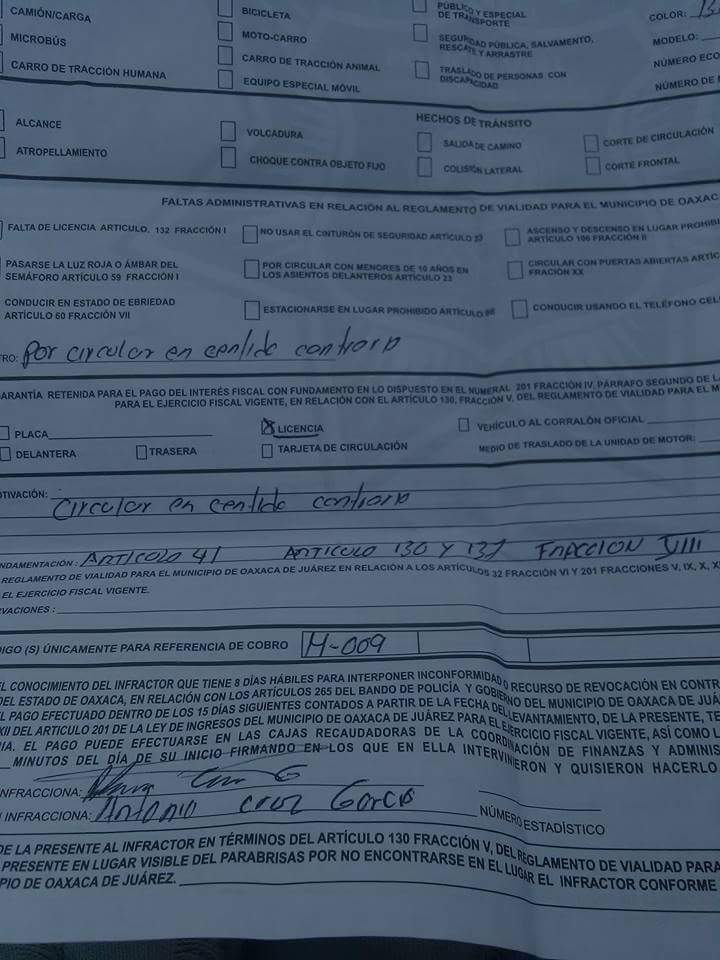 CAMIÓN/CARGA
BICICLETA
PÚBLICO Y ESPECIAL DE TRANSPORTE
COLOR:
MICROBÚS
MOTO-CARRO
SEGURIDAD PÚBLICA, SALVAMENTO, RESCATE Y ARRASTRE
MODELO:
CARRO DE TRACCIÓN HUMANA
CARRO DE TRACCIÓN ANIMAL
EQUIPO ESPECIAL MÓVIL
TRASLADO DE PERSONAS CON DISCAPACIDAD
NÚMERO ECO
NÚMERO DE
HECHOS DE TRÁNSITO
ALCANCE
VOLCADURA
SALIDA DE CAMINO
CORTE DE CIRCULACIÓN
ATROPELLAMIENTO
CHOQUE CONTRA OBJETO FIJO
COLISIÓN LATERAL
CORTE FRONTAL
FALTAS ADMINISTRATIVAS EN RELACIÓN AL REGLAMENTO DE VIALIDAD PARA EL MUNICIPIO DE OAXAC
FALTA DE LICENCIA ARTICULO. 132 FRACCIÓN I
NO USAR EL CINTURÓN DE SEGURIDAD ARTÍCULO
ASCENSO Y DESCENSO EN LUGAR PROHIBI
ARTÍCULO 106 FRACCIÓN II
PASARSE LA LUZ ROJA O ÁMBAR DEL
SEMÁFORO ARTÍCULO 59 FRACCIÓN I
POR CIRCULAR CON MENORES DE 10 AÑOS EN
LOS ASIENTOS DELANTEROS ARTICULO 23
CIRCULAR CON PUERTAS ABIERTAS ARTÍC
FRACIÓN XX
CONDUCIR EN ESTADO DE EBRIEDAD
ARTÍCULO 60 FRACCIÓN VII
ESTACIONARSE EN LUGAR PROHIBIDO ARTÍCULO
CONDUCIR USANDO EL TELÉFONO CEL
TRO: Por circular en centido contrario
ARANTÍA RETENIDA PARA EL PAGO DEL INTERÉS FISCAL CON FUNDAMENTO EN LO DISPUESTO EN EL NUMERAL 201 FRACCIÓN IV, PÁRRAFO SEGUNDO DE L
PARA EL EJERCICIO FISCAL VIGENTE, EN RELACIÓN CON EL ARTÍCULO 130, FRACCIÓN V, DEL REGLAMENTO DE VIALIDAD PARA EL M
PLACA
X LICENCIA
VEHÍCULO AL CORRALÓN OFICIAL
DELANTERA
TRASERA
TARJETA DE CIRCULACIÓN
MEDIO DE TRASLADO DE LA UNIDAD DE MOTOR:
OTIVACIÓN: Circular en centido contrario
NDAMENTACIÓN: ARTICULO 41 ARTICULO 130 Y 137 FRACCION VIII
REGLAMENTO DE VIALIDAD PARA EL MUNICIPIO DE OAXACA DE JUÁREZ EN RELACIÓN A LOS ARTÍCULOS 32 FRACCIÓN VI Y 201 FRACCIONES V, IX, X, X
EL EJERCICIO FISCAL VIGENTE.
RVACIONES :
DIGO (S) ÚNICAMENTE PARA REFERENCIA DE COBRO M-009
EL CONOCIMIENTO DEL INFRACTOR QUE TIENE 8 DÍAS HÁBILES PARA INTERPONER INCONFORMIDAD O RECURSO DE REVOCACIÓN EN CONTR
DEL ESTADO DE OAXACA, EN RELACIÓN CON LOS ARTÍCULOS 265 DEL BANDO DE POLICÍA Y GOBIERNO DEL MUNICIPIO DE OAXACA DE JUÁ
L PAGO EFECTUADO DENTRO DE LOS 15 DÍAS SIGUIENTES CONTADOS A PARTIR DE LA FECHA DEL LEVANTAMIENTO, DE LA PRESENTE, TE
XII DEL ARTICULO 201 DE LA LEY DE INGRESOS DEL MUNICIPIO DE OAXACA DE JUÁREZ PARA EL EJERCICIO FISCAL VIGENTE, ASÍ COMO L
IA. EL PAGO PUEDE EFECTUARSE EN LAS CAJAS RECAUDADORAS DE LA COORDINACIÓN DE FINANZAS Y ADMINIS
MINUTOS DEL DÍA DE SU INICIO FIRMANDO EN LOS QUE EN ELLA INTERVINIERON Y QUISIERON HACERLO.
INFRACCIONA:
INFRACCIONA: Antonio Cruz Garcia
NÚMERO ESTADÍSTICO
DE LA PRESENTE AL INFRACTOR EN TÉRMINOS DEL ARTÍCULO 130 FRACCIÓN V, DEL REGLAMENTO DE VIALIDAD PARA
PRESENTE EN LUGAR VISIBLE DEL PARABRISAS POR NO ENCONTRARSE EN EL LUGAR EL INFRACTOR CONFORME
PIO DE OAXACA DE JUÁREZ.